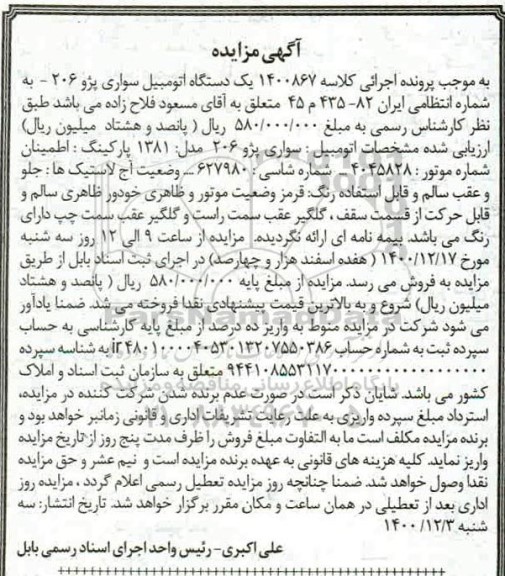 آگهی مزایده
به موجب پرونده اجرائی کلاسه ۱۴۰۰۸۶۷ یک دستگاه اتومبیل سواری پژو ۲۰۶ - به
شماره انتظامی ایران ۸۲- ۴۳۵ م ۴۵ متعلق به آقای مسعود فلاح زاده می باشد طبق
نظر کارشناس رسمی به مبلغ ۵۸۰/۰۰۰/۰۰۰ ریال ( پانصد و هشتاد میلیون ریال)
ارزیابی شده مشخصات اتومبیل : سواری پژو ۲۰۶ مدل: ۱۳۸۱ پارکینگ : اطمینان
شماره موتور : ۴۰۳۵۸۲۸ – شماره شاسی : ۶۲۷۹۸۰ – وضعیت آج لاستیک ها : جلو
و عقب سالم و قابل استفاده رنگ: قرمز وضعیت موتور و ظاهری خودور ظاهری سالم و
قابل حرکت از قسمت سقف ، گلگیر عقب سمت راست و گلگیر عقب سمت چپ دارای
رنگ می باشد. بیمه نامه ای ارائه نگردیده. مزایده از ساعت ۹ الی ۱۲ روز سه شنبه
مورخ ۱۴۰۰/۱۲/۱۷ ( هفده اسفند هزار و چهارصد) در اجرای ثبت اسناد بابل از طریق
مزایده به فروش می رسد. مزایده از مبلغ پایه ۵۸۰/۰۰۰/۰۰۰ ریال ( پانصد و هشتاد
میلیون ریال) شروع و به بالاترین قیمت پیشنهادی نقدا فروخته می شد. ضمنا یادآور
می شود شرکت در مزایده منوط به واریز ده درصد از مبلغ پایه کارشناسی به حساب
سپرده ثبت به شماره حساب به شناسه سپرده
متعلق به سازمان ثبت اسناد و املاک
کشور می باشد. شایان ذکر است در صورت عدم برنده شدن شرکت کننده در مزایده،
استرداد مبلغ سپرده واریزی به علت رعایت تشریفات اداری و قانونی زمانبر خواهد بود و
برنده مزایده مکلف است ما به التفاوت مبلغ فروش را ظرف مدت پنج روز از تاریخ مزایده
واریز نماید. کلیه هزینه های قانونی به عهده برنده مزایده است و نیم عشر و حق مزایده
نقدا وصول خواهد شد. ضمنا چنانچه روز مزایده تعطیل رسمی اعلام گردد ، مزایده روز
اداری بعد از تعطیلی در همان ساعت و مکان مقرر برگزار خواهد شد. تاریخ انتشار: سه
شنبه ۱۴۰۰/۱۲/۳
علی اکبری- رئیس واحد اجرای اسناد رسمی بابل